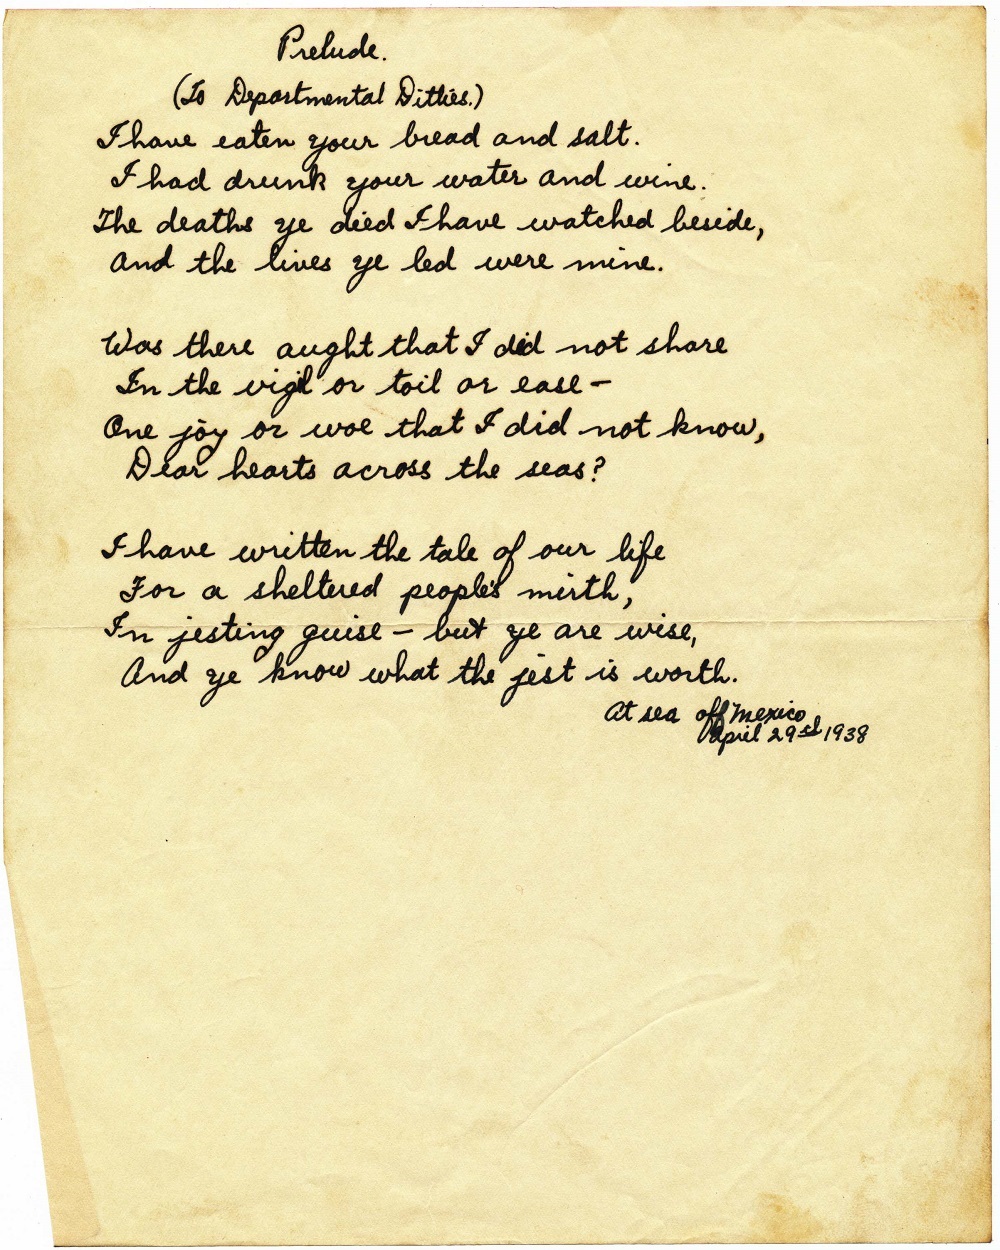 Prelude.
(To Departmental Ditties.)
I have eaten your bread and salt.
I had drunk your water and wine.
The deaths ye died I have watched beside,
And the lives ye led were mine.
Was there aught that I did not share
In the vigil or toil or ease –
One joy or woe that I did not know,
Dear hearts across the seas?
I have written the tale of our life
For a sheltered people's mirth,
In jesting guise – but ye are wise,
And ye know what the jest is worth.
At sea off Mexico
April 29rd 1938